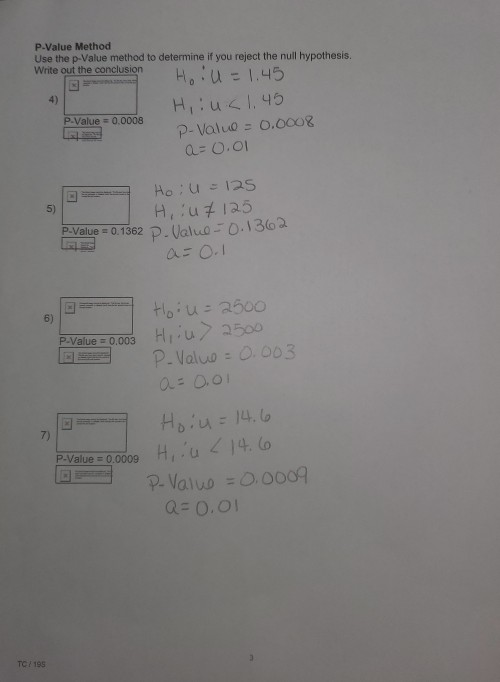 P-Value Method
Use the p-Value method to determine if you reject the null hypothesis.
Write out the conclusion
4)
P-Value = 0.0008
H₀ : u = 1.45
H₁ : u < 1.45
P-Value = 0.0008
a = 0.01
5)
P-Value = 0.1362
H₀ : u = 125
H₁ : u ≠ 125
P-Value = 0.1362
a = 0.1
6)
P-Value = 0.003
H₀ : u = 2500
H₁ : u > 2500
P-Value = 0.003
a = 0.01
7)
P-Value = 0.0009
H₀ : u = 14.6
H₁ : u < 14.6
P-Value = 0.0009
a = 0.01
3
TC / 19S